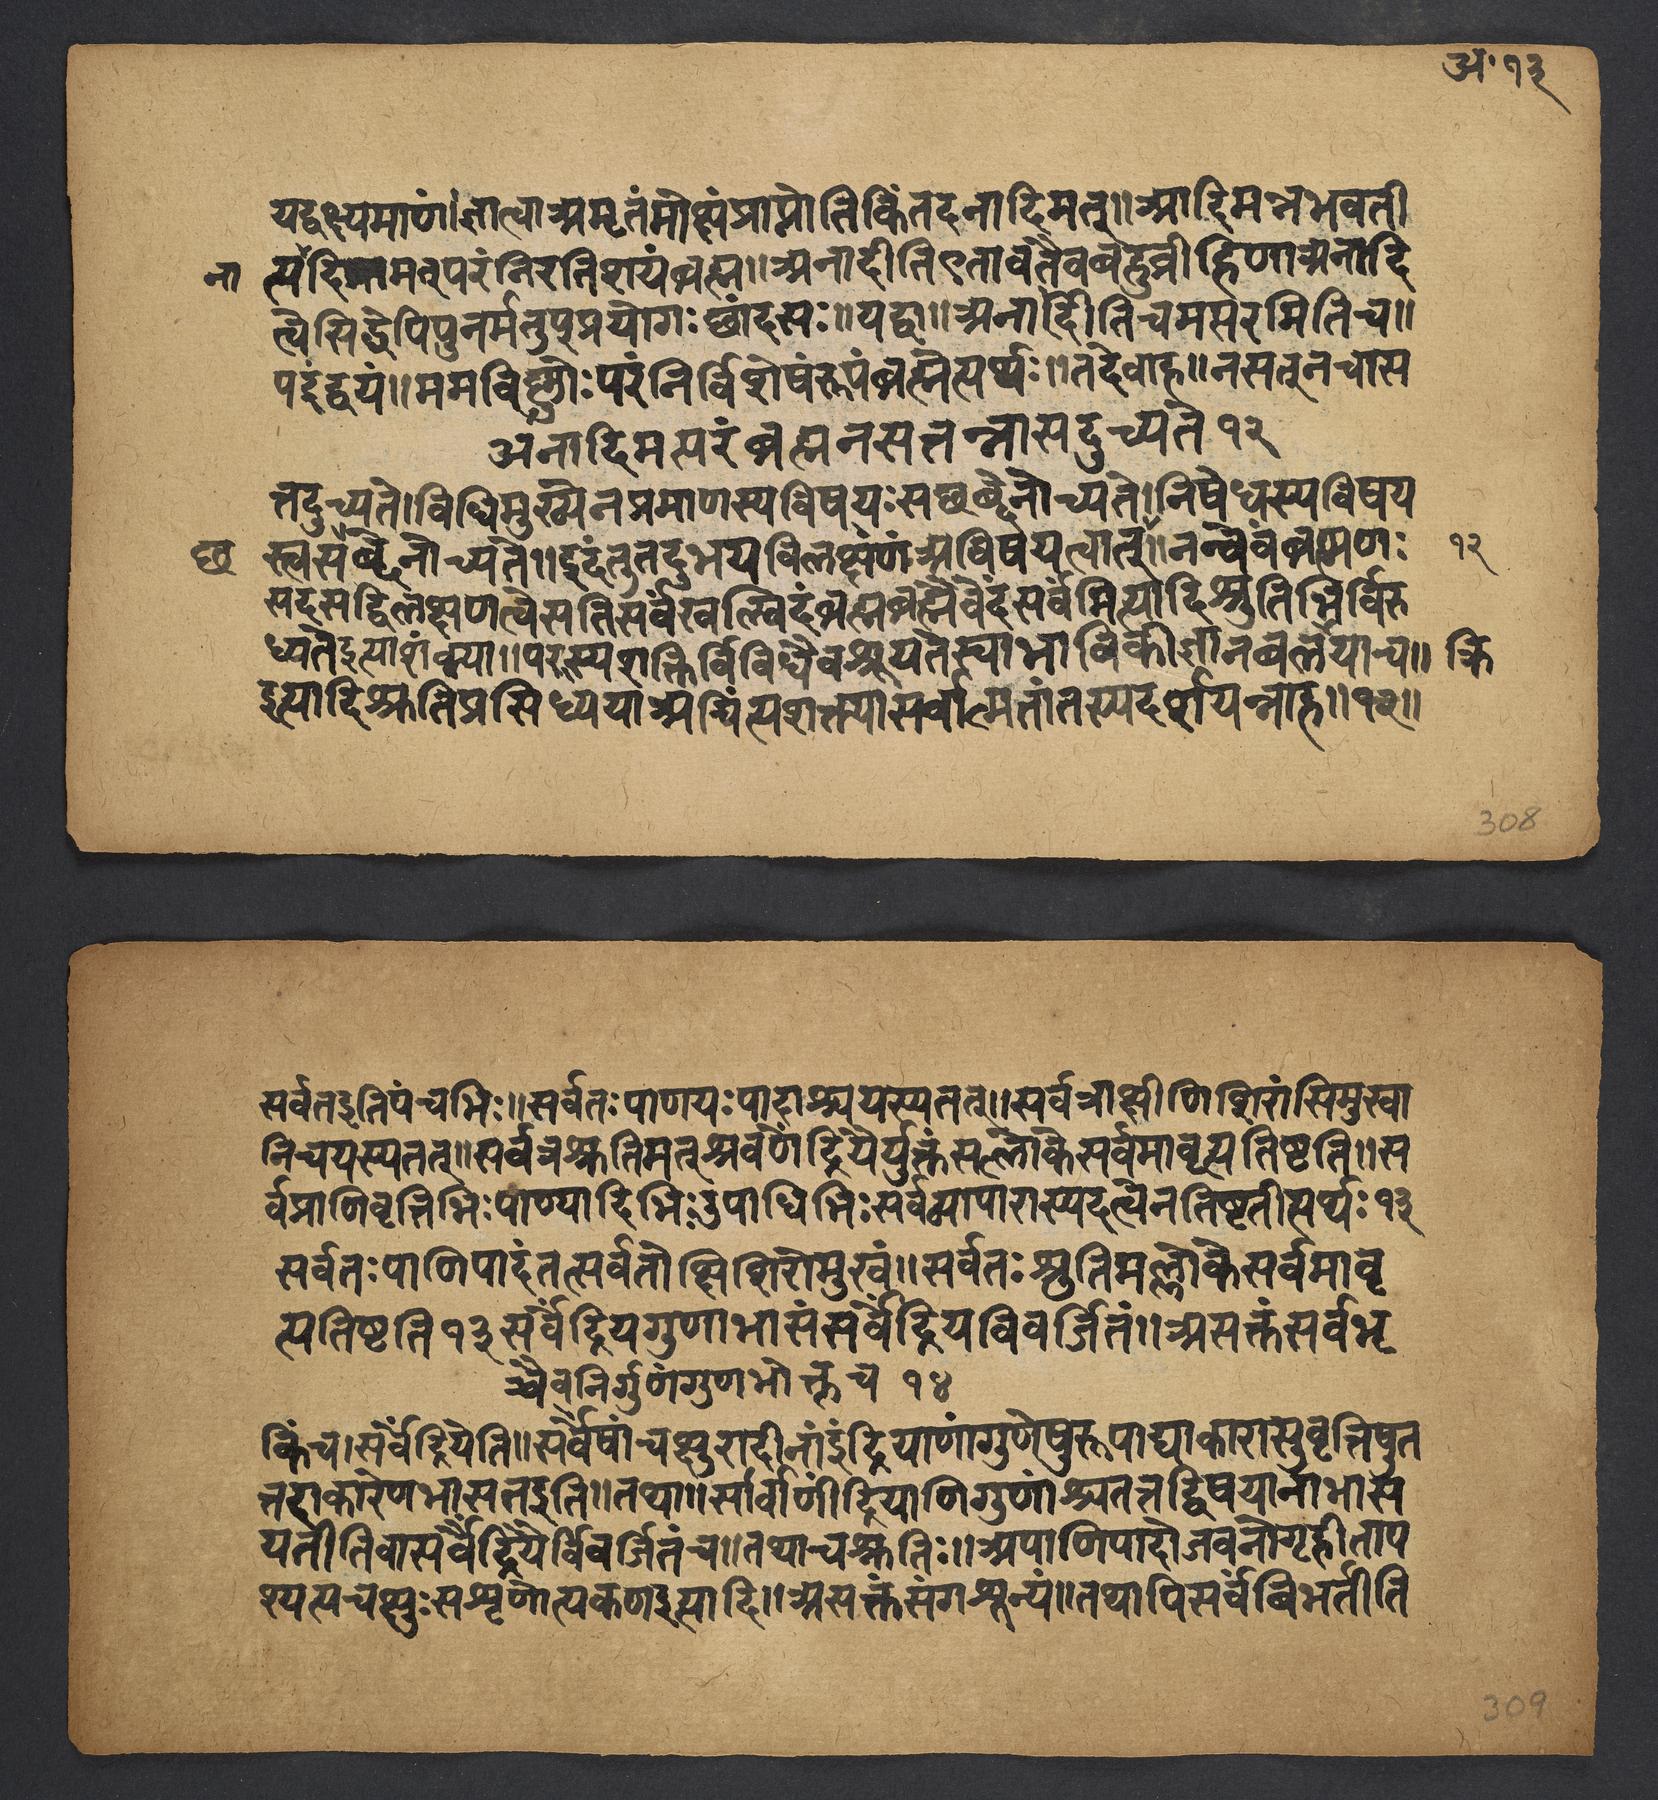 अ॰ १३
यद्वक्ष्यमाणं।ज्ञात्वाअमृतंमोक्षंप्राप्नोतिकिंतदनादिमत्॥आदिमन्नभवती
ना त्यदिमामत्परंनिरतिशयंब्रह्म॥अनादीतिएतावतैवबहुव्रीहिणाअनादि
त्वेसिद्धेपिपुनर्मतुप्प्रयोगःछांदसः॥यद्वा॥अनादीतिचमत्परमितिच॥
पदंद्वयं॥ममविष्णोःपरंनिर्विशेषंरूपंब्रह्मेत्यर्थः॥तदेवाह॥नसत्नचास
अनादिमत्परंब्रह्मनसत्तन्नासदुच्यते१२
त्तदुच्यते।विधिमुख्येनप्रमाणस्यविषयःसछब्देनोच्यते।निषेधस्यविषय
छ स्त्वसब्देनोच्यते॥इदंतुतदुभयविलक्षणंअविषयत्वात्॥नन्वेवंब्रह्मणः १२
सदसद्विलक्षणत्वेसतिसर्वंखल्विदंब्रह्मब्रह्मैवेदंसर्वमित्यादिश्रुतिभिर्विरु
ध्येतइत्याशंक्या॥परस्यशक्तिर्विविधैवश्रूयतेस्वाभाविकीज्ञानबलयाच॥ क्रि
इत्यादिश्रुतिप्रसिध्ययाअचिंत्यशक्त्यासर्वात्मतांतस्यदर्शयन्नाह॥१२॥
308
सर्वतइतिपंचभिः॥सर्वतःपाणयःपादाश्चयस्यतत्॥सर्वत्राक्षीणिशिरांसिमुखा
निचयस्यतत्॥सर्वत्रश्रुतिमत्श्रवणेंद्रियैर्युक्तंसल्लोकेसर्वमावृत्यतिष्टति॥स
र्वप्राणिवृत्तिभिःपाण्यादिभिःउपाधिभिःसर्वव्यापारास्पदत्वेनतिष्टतीत्यर्थः१३
सर्वतःपाणिपादंतत्सर्वतोक्षिशिरोमुखं॥सर्वतःश्रुतिमल्लोकेसर्वमावृ
त्यतिष्टति१३सर्वेंद्रियगुणाभासंसर्वेंद्रियविवर्जितं॥असक्तंसर्वभृ
च्चैवनिर्गुणंगुणभोक्तृच १४
किंच।सर्वेंद्रियेति॥सर्वेषांचक्षुरादीनांइंद्रियाणांगुणेषुरूपाद्याकारासुवृत्तिषुत
त्तदाकारेणभासतइति॥तथा॥सर्वाणींद्रियाणिगुणांश्चतत्तद्विषयानाभास
यतीतिवासर्वेंद्रियैर्विवर्जितंच॥तथाचश्रुतिः॥अपाणिपादोजवनोगृहीताप
श्यत्यचक्षुःसशृणोत्यकर्णइत्यादि॥असक्तंसंगशून्यं॥तथापिसर्वंबिभर्तीति
309